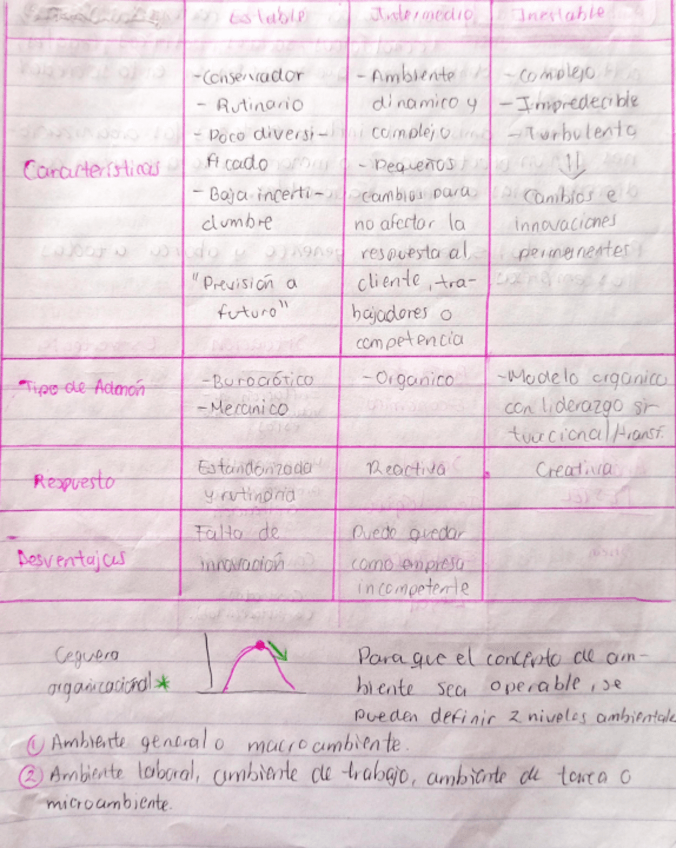 Estable Intermedio Inestable
Características
-Conservador
- Rutinario
- Poco diversi-
ficado
- Baja incerti-
dumbre
"Previsión a
futuro"
- Ambiente
dinamico y
complejo
- Pequeños
cambios para
no afectar la
respuesta al
cliente, tra-
bajadores o
competencia
- Complejo
- Impredecible
- Turbulento
⇓
Cambios e
innovaciones
permanentes
Tipo de Admón
-Burocrótico
-Mecánico
-Organico
-Modelo organico
con liderazgo si-
tuacional/transf.
Respuesto
Estandarizada
y rutinaria
Reactiva
Creativa
Desventajas
Falta de
innovación
Puede quedar
como empresa
incompetente
Ceguera
organizacional*
Para que el concepto de am-
biente sea operable, se
pueden definir 2 niveles ambientale
① Ambiente general o macroambiente.
② Ambiente laboral, ambiente de trabajo, ambiente de tarea o
microambiente.